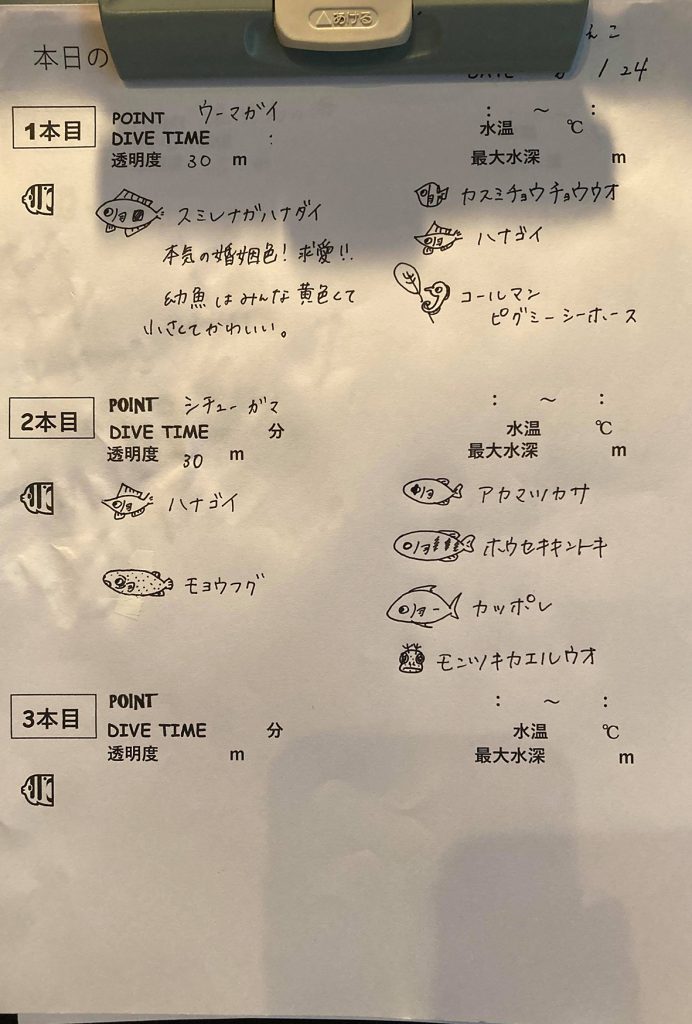 △あける
本日の
んこ
1 24
1本目
POINT ウーマガイ
DIVE TIME :
透明度 30 m
: ~ :
水温 ℃
最大水深 m
スミレナガハナダイ
本気の婚姻色! 求愛!!
幼魚はみんな黄色くて
小さくてかわいい。
カスミチョウチョウウオ
ハナゴイ
コールマン
ピグミーシーホース
2本目
POINT シチューガマ
DIVE TIME 分
透明度 30 m
: ~ :
水温 ℃
最大水深 m
ハナゴイ
モヨウフグ
アカマツカサ
ホウセキキントキ
カッポレ
モンツキカエルウオ
3本目
POINT
DIVE TIME 分
透明度 m
: ~ :
水温 ℃
最大水深 m